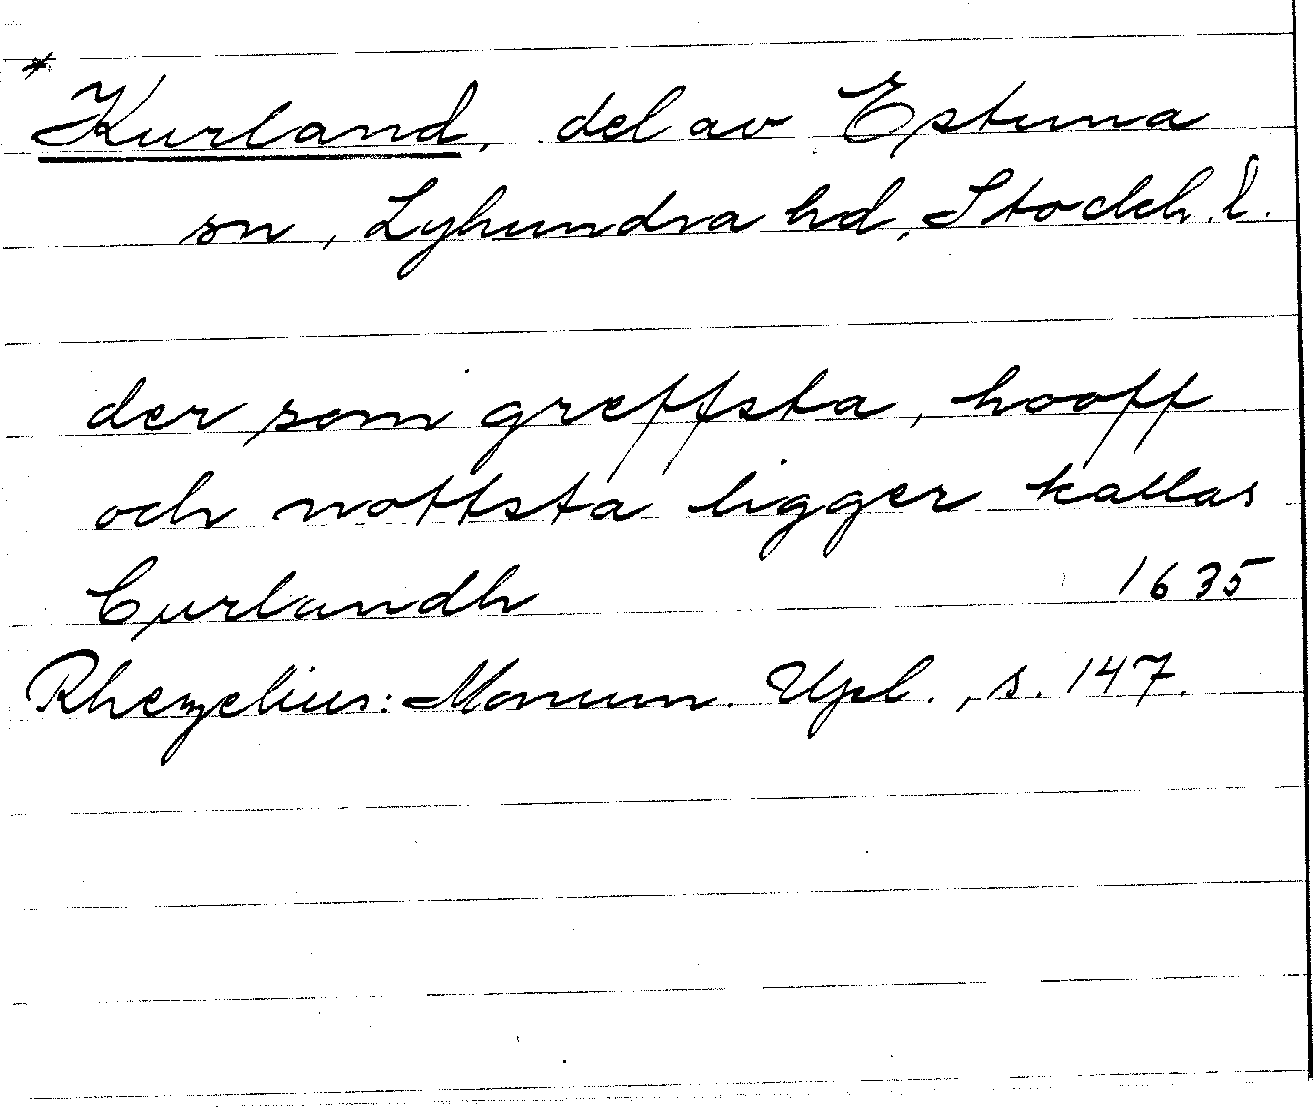 * Kurland, del av Estuna
sn, Lyhundra hd, Stockh. l.
der som greffsta, hooff
och nottsta ligger kallas
Curlandh 1635
Rhezelius: Monum. Upl., s. 147.